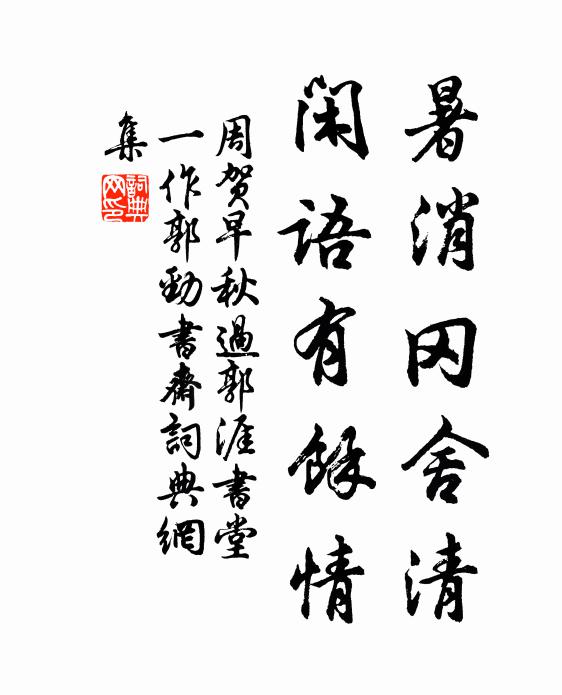 暑消冈舍清
闲語有餘情
周賀早秋過郭涯書堂
一作郭勁書齋詞典網
集
詞典
网印